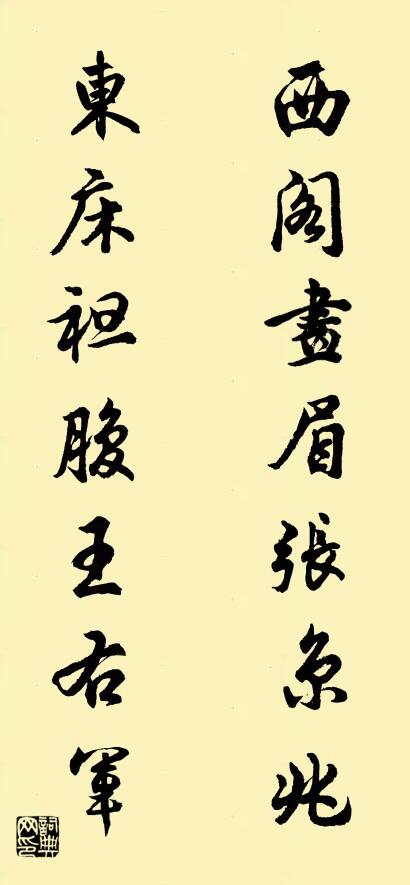 西閣畫眉張京兆
東床袒腹王右軍
詞典網印